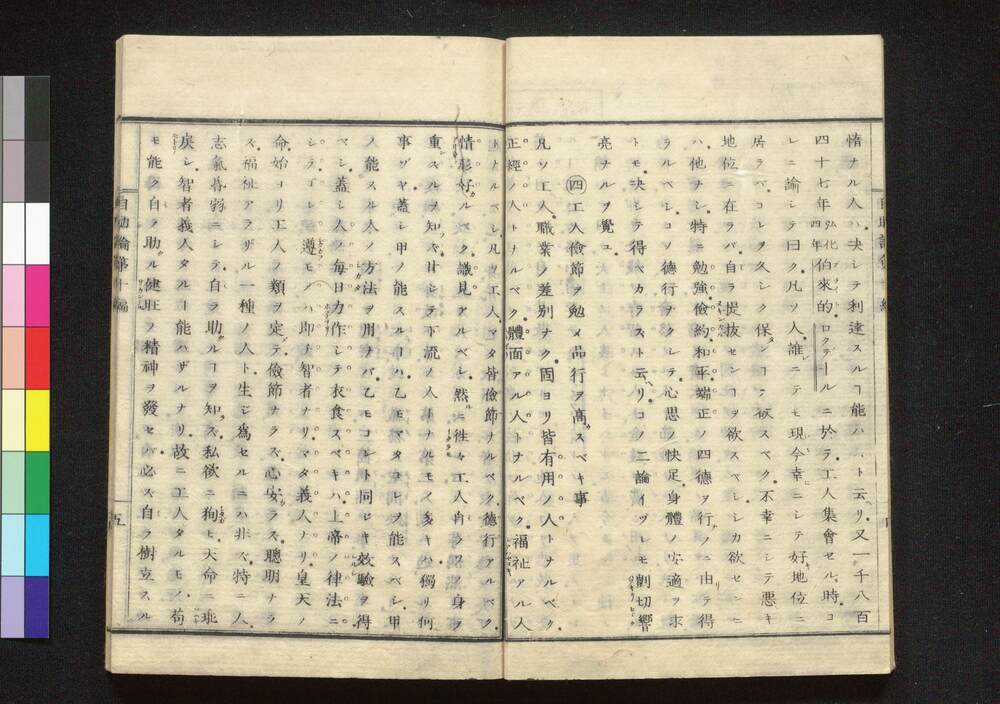 惰ナル人ハ決シテ利達スルヿ能ハズト云ヘリ又一千八百
四十七年弘化四年伯來的ロクデールニ於テ工人集會セル時コ
レニ諭シテ曰ク凡ソ人誰ニテモ現今幸ニシテ好地位ニ
居ラバコレヲ久シク保タンヿヲ欲スベク不幸ニシテ悪キ
地位ニ在ラバ自ラ提拔センヿヲ欲スベシシカ欲センニ
ハ他ナシ特ニ勉強儉約和平端正ノ四德ヲ行フニ由テ得
ラルベシコノ德行ヲクシテ心思ノ快足身體ノ安適ヲ求
トモ决シテ得ベカラスト云ヘリコノ二論イヅレモ剴切響
亮ナルヲ覺ユ
㊃工人儉節ヲ勉メ品行ヲ高スベキ事
凡ソ工人職業ノ差別ナク固ヨリ皆有用ノ人トナルベク
正經ノ人トナルベク體面アル人トナルベク福祉アル人
トナルベシ凡ソ工人マタ皆儉節ナルベク德行アルベク
情形好カルベク識見アルベシ然ルニ徃々工人自ラ身ヲ
重スルヲ知ラズ甘シテ下流ノ人トナルモノ多キハ獨リ何
事ゾヤ蓋シ甲ノ能スルヿハ乙モマタコレヲ能スベシ甲
ノ能スル人ノ方法ヲ用ナバ乙モコレト同ジキ效驗ヲ得
ベシ蓋シ人ノ毎日力作シテ衣食スベキハ上帝ノ律法ニ
シテコレニ遵モノハ即チ智者ナリマタ義人ナリ皇天ノ
命始ヨリ工人ノ類ヲ定メテ儉節ナラズ心安ラズ聰明ナラ
ズ福祉アラザル一種ノ人ト生ジ爲セルニハ非ズ特ニ人
志氣昏弱ニシテ自ラ助クルヿヲ知ラズ私欲ニ狥ヒ天命ニ乖
戾シ智者義人タルヿ能ハザルナリ故ニ工人タルモノ苟
モ能ク自ラ助クル健旺ノ精神ヲ發セバ必ズ自ラ樹立スル
自助論第十編
五